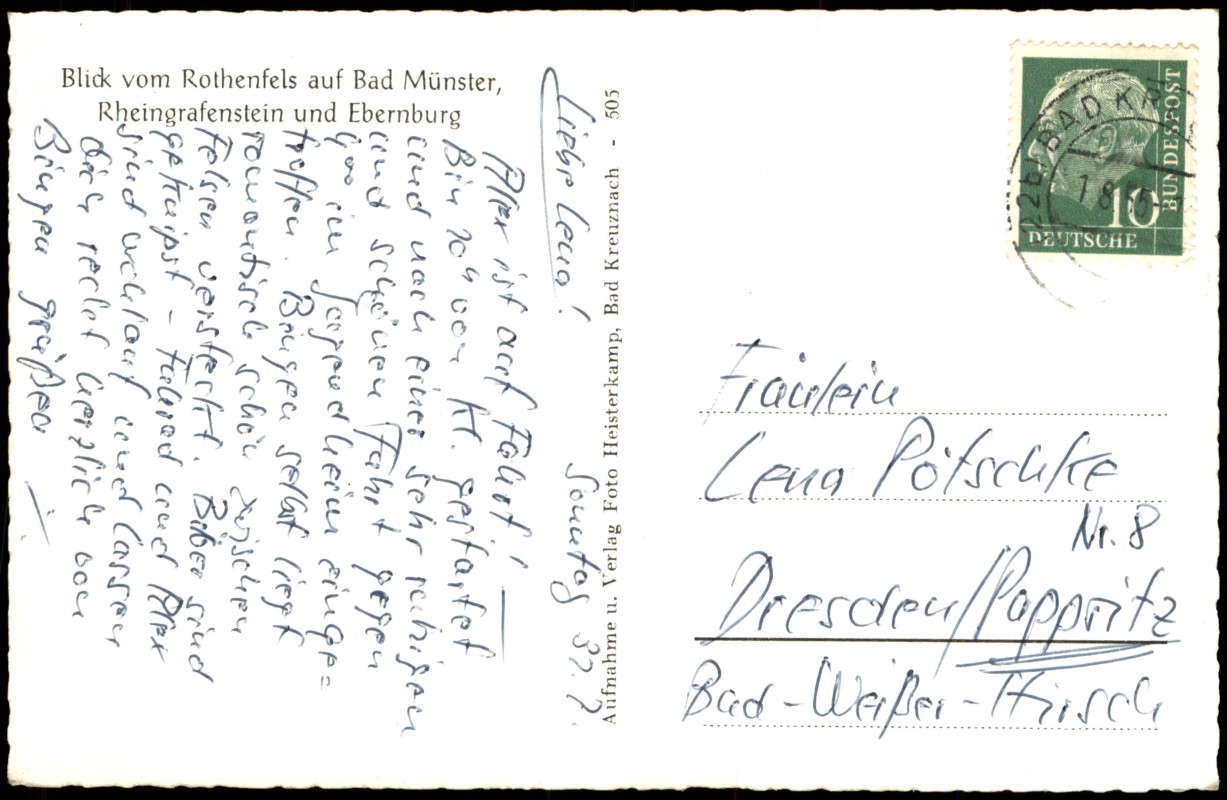 Blick vom Rothenfels auf Bad Münster,
Rheingrafenstein und Ebernburg
Sonntag 31.7.
Liebe Lena!
Alex ist auf Fahrt!
Bin 20h von Kl. gestartet
und nach einer sehr ruhigen
und schönen Fahrt gegen
in Jugendheim einge=
troffen. Bingen selbst liegt
romantisch schön zwischen
Felsen versteckt. Biber sind
geknipst - Fahrad und Alex
sind wohlauf und lassen
dich recht herzlich von
Bingen grüßen
Aufnahme u. Verlag Foto Heisterkamp, Bad Kreuznach - 505
DEUTSCHE
BUNDESPOST
10
BAD
1.8.55
Fräulein
Lena Pötschke
Nr. 8
Dresden/Pappritz
Bad-Weißer-Hirsch